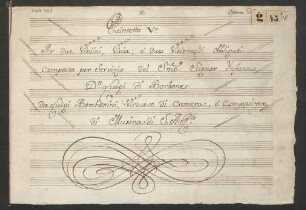 Quintetto V.º
Per due Violini, Viola, e due Violoncelli Obligati
Composto per Servizio del Ser.mo Signor Infante
D.n Luigi di Borbone
Da Luigi Boccherini, Virtuoso di Camera, e Compositore
di Musica di S.A.R.